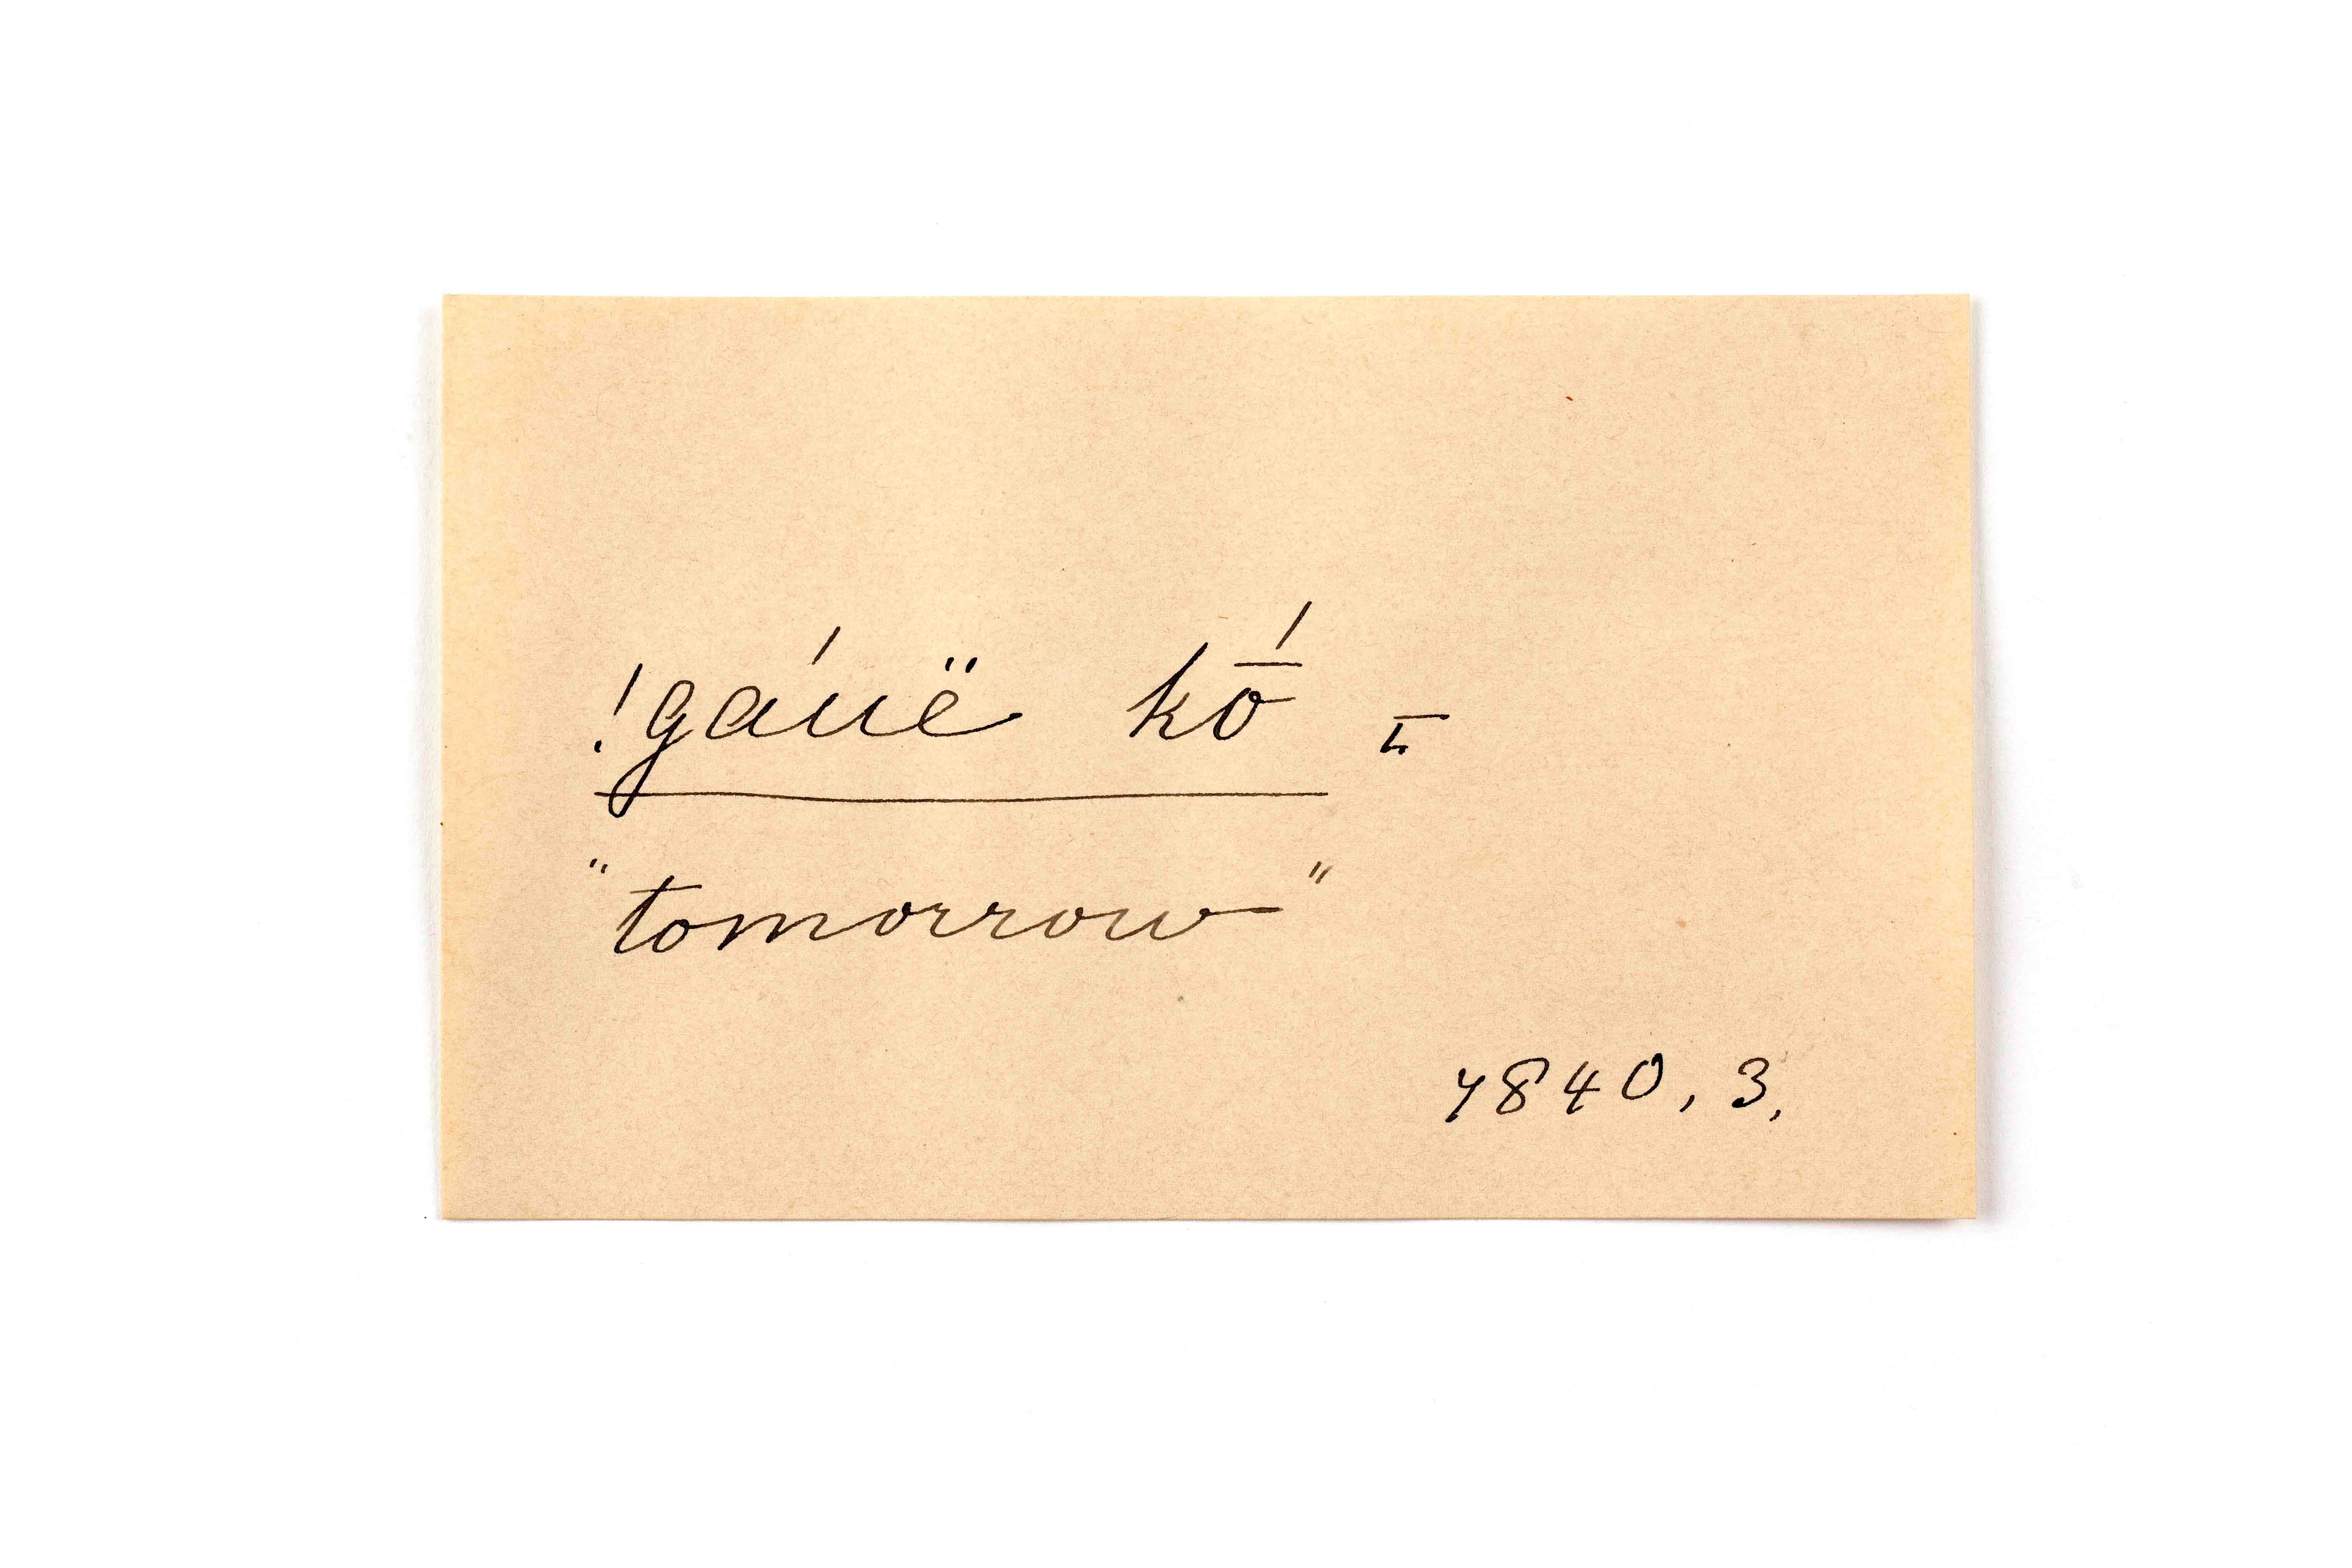 !gáuë kṓ L.
"tomorrow"
7840, 3.